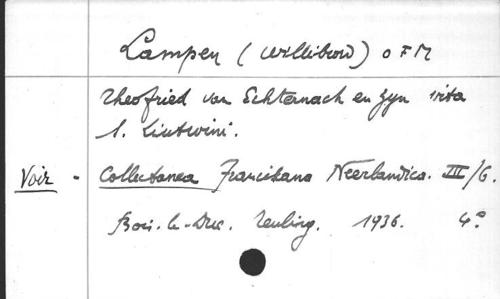 Lampen (Willibrord) OFM
Theofried van Echternach en zyn vita
S. Liutwini.
Voir - Collectanea Franciscana Neerlandica. III/6.
Bois-le-Duc. Teulings. 1936. 4°